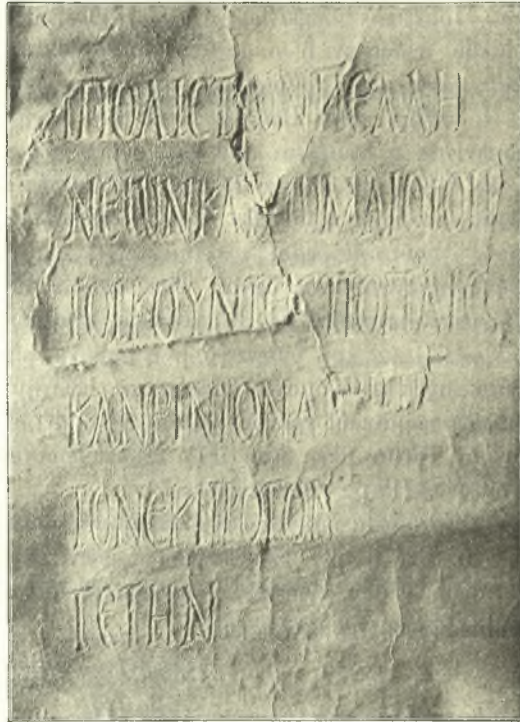 ΗΠΟΛΙCΤΩΝΠΕΛΛΗ
ΝΕΩΝΚΑΙΡΩΜΑΙΟΙΟΙ
ΤΟΙΚΟΥΝΤΕCΠΟΠΛΙΟ
ΚΑΝΡΙΝΙΟΝΑ
ΤΟΝΕΚΠΡΟΓΟΝ
ΓΕΤΗΝ